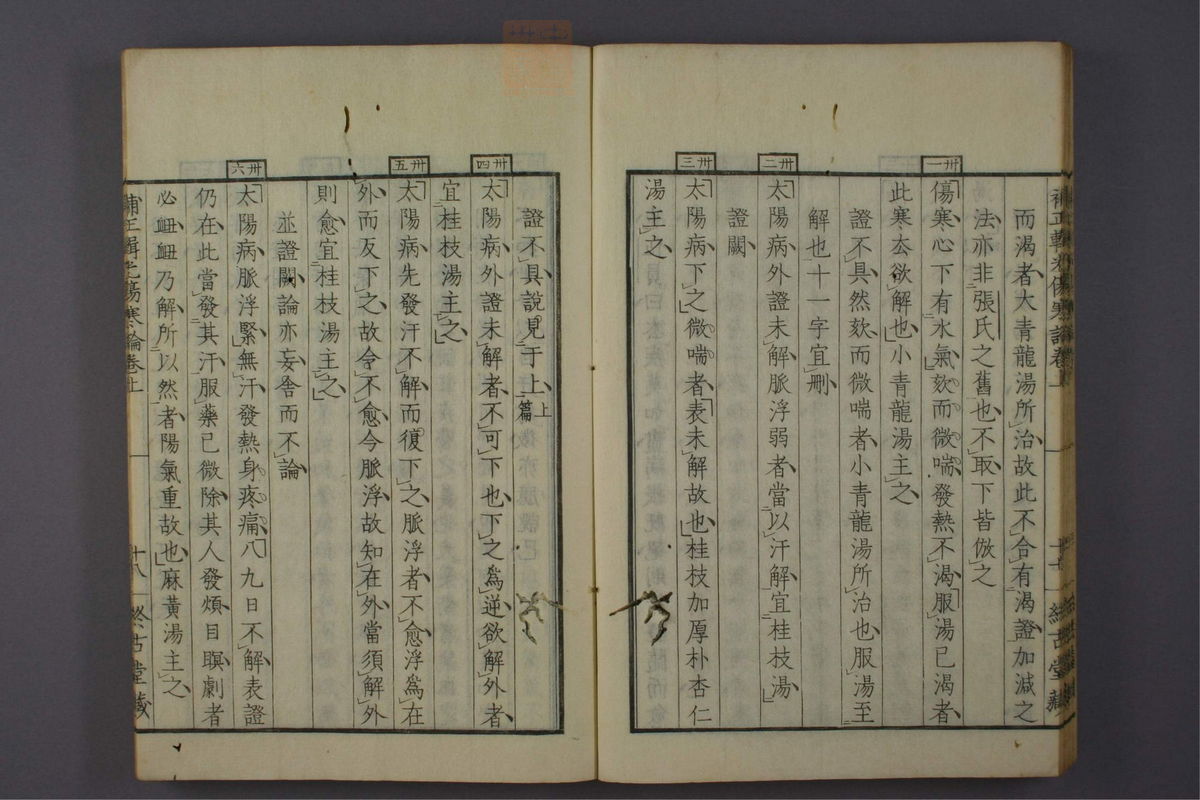 補正輯光傷寒論卷上
十七
終古堂藏
而渴者大青龍湯所治故此不合有渴證加減之
法亦非張氏之舊也不取下皆倣之
卅一
傷寒心下有水氣欬而微喘發熱不渴服湯已渴者
此寒去欲解也小青龍湯主之
證不具然欬而微喘者小青龍湯所治也服湯至
解也十一字宜刪
卅二
太陽病外證未解脈浮弱者當以汗解宜桂枝湯
證闕
卅三
太陽病下之微喘者表未解故也桂枝加厚朴杏仁
湯主之
證不具說見于上上篇
卅四
太陽病外證未解者不可下也下之為逆欲解外者
宜桂枝湯主之
卅五
太陽病先發汗不解而復下之脈浮者不愈浮為在
外而反下之故令不愈今脈浮故知在外當須解外
則愈宜桂枝湯主之
並證闕論亦妄舍而不論
卅六
太陽病脈浮緊無汗發熱身疼痛八九日不解表證
仍在此當發其汗服藥已微除其人發煩目瞑劇者
必衄衄乃解所以然者陽氣重故也麻黃湯主之
補正輯光傷寒論卷上
十八
終古堂藏